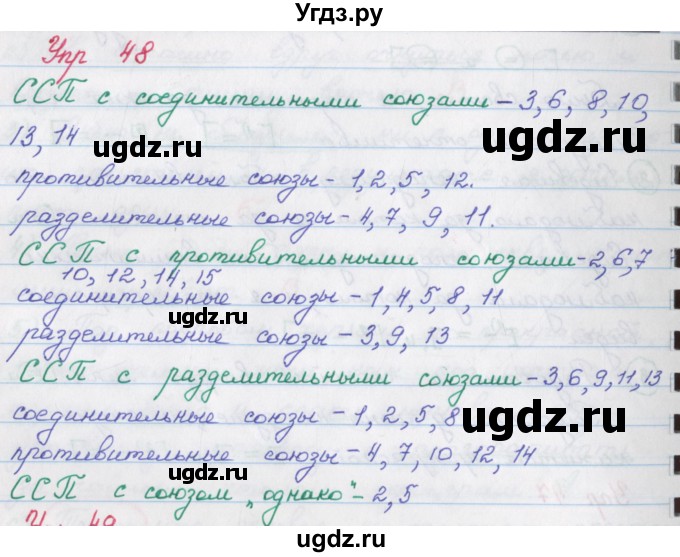 Угдз.ру
Упр 48
ССП с соединительными союзами - 3, 6, 8, 10,
13, 14
ugdz.ru
ugdz.ru
противительные союзы - 1, 2, 5, 12.
разделительные союзы - 4, 7, 9, 11.
ССП с противительными союзами - 2, 6, 7
10, 12, 14, 15
соединительные союзы - 1, 4, 5, 8, 11
ugdz.ru
разделительные союзы - 3, 9, 13
ССП с разделительными союзами - 3, 6, 9, 11, 13
соединительные союзы - 1, 2, 5, 8
ugdz.ru
противительные союзы - 4, 7, 10, 12, 14
ССП с союзом „однако" - 2, 5
ugdz.ru